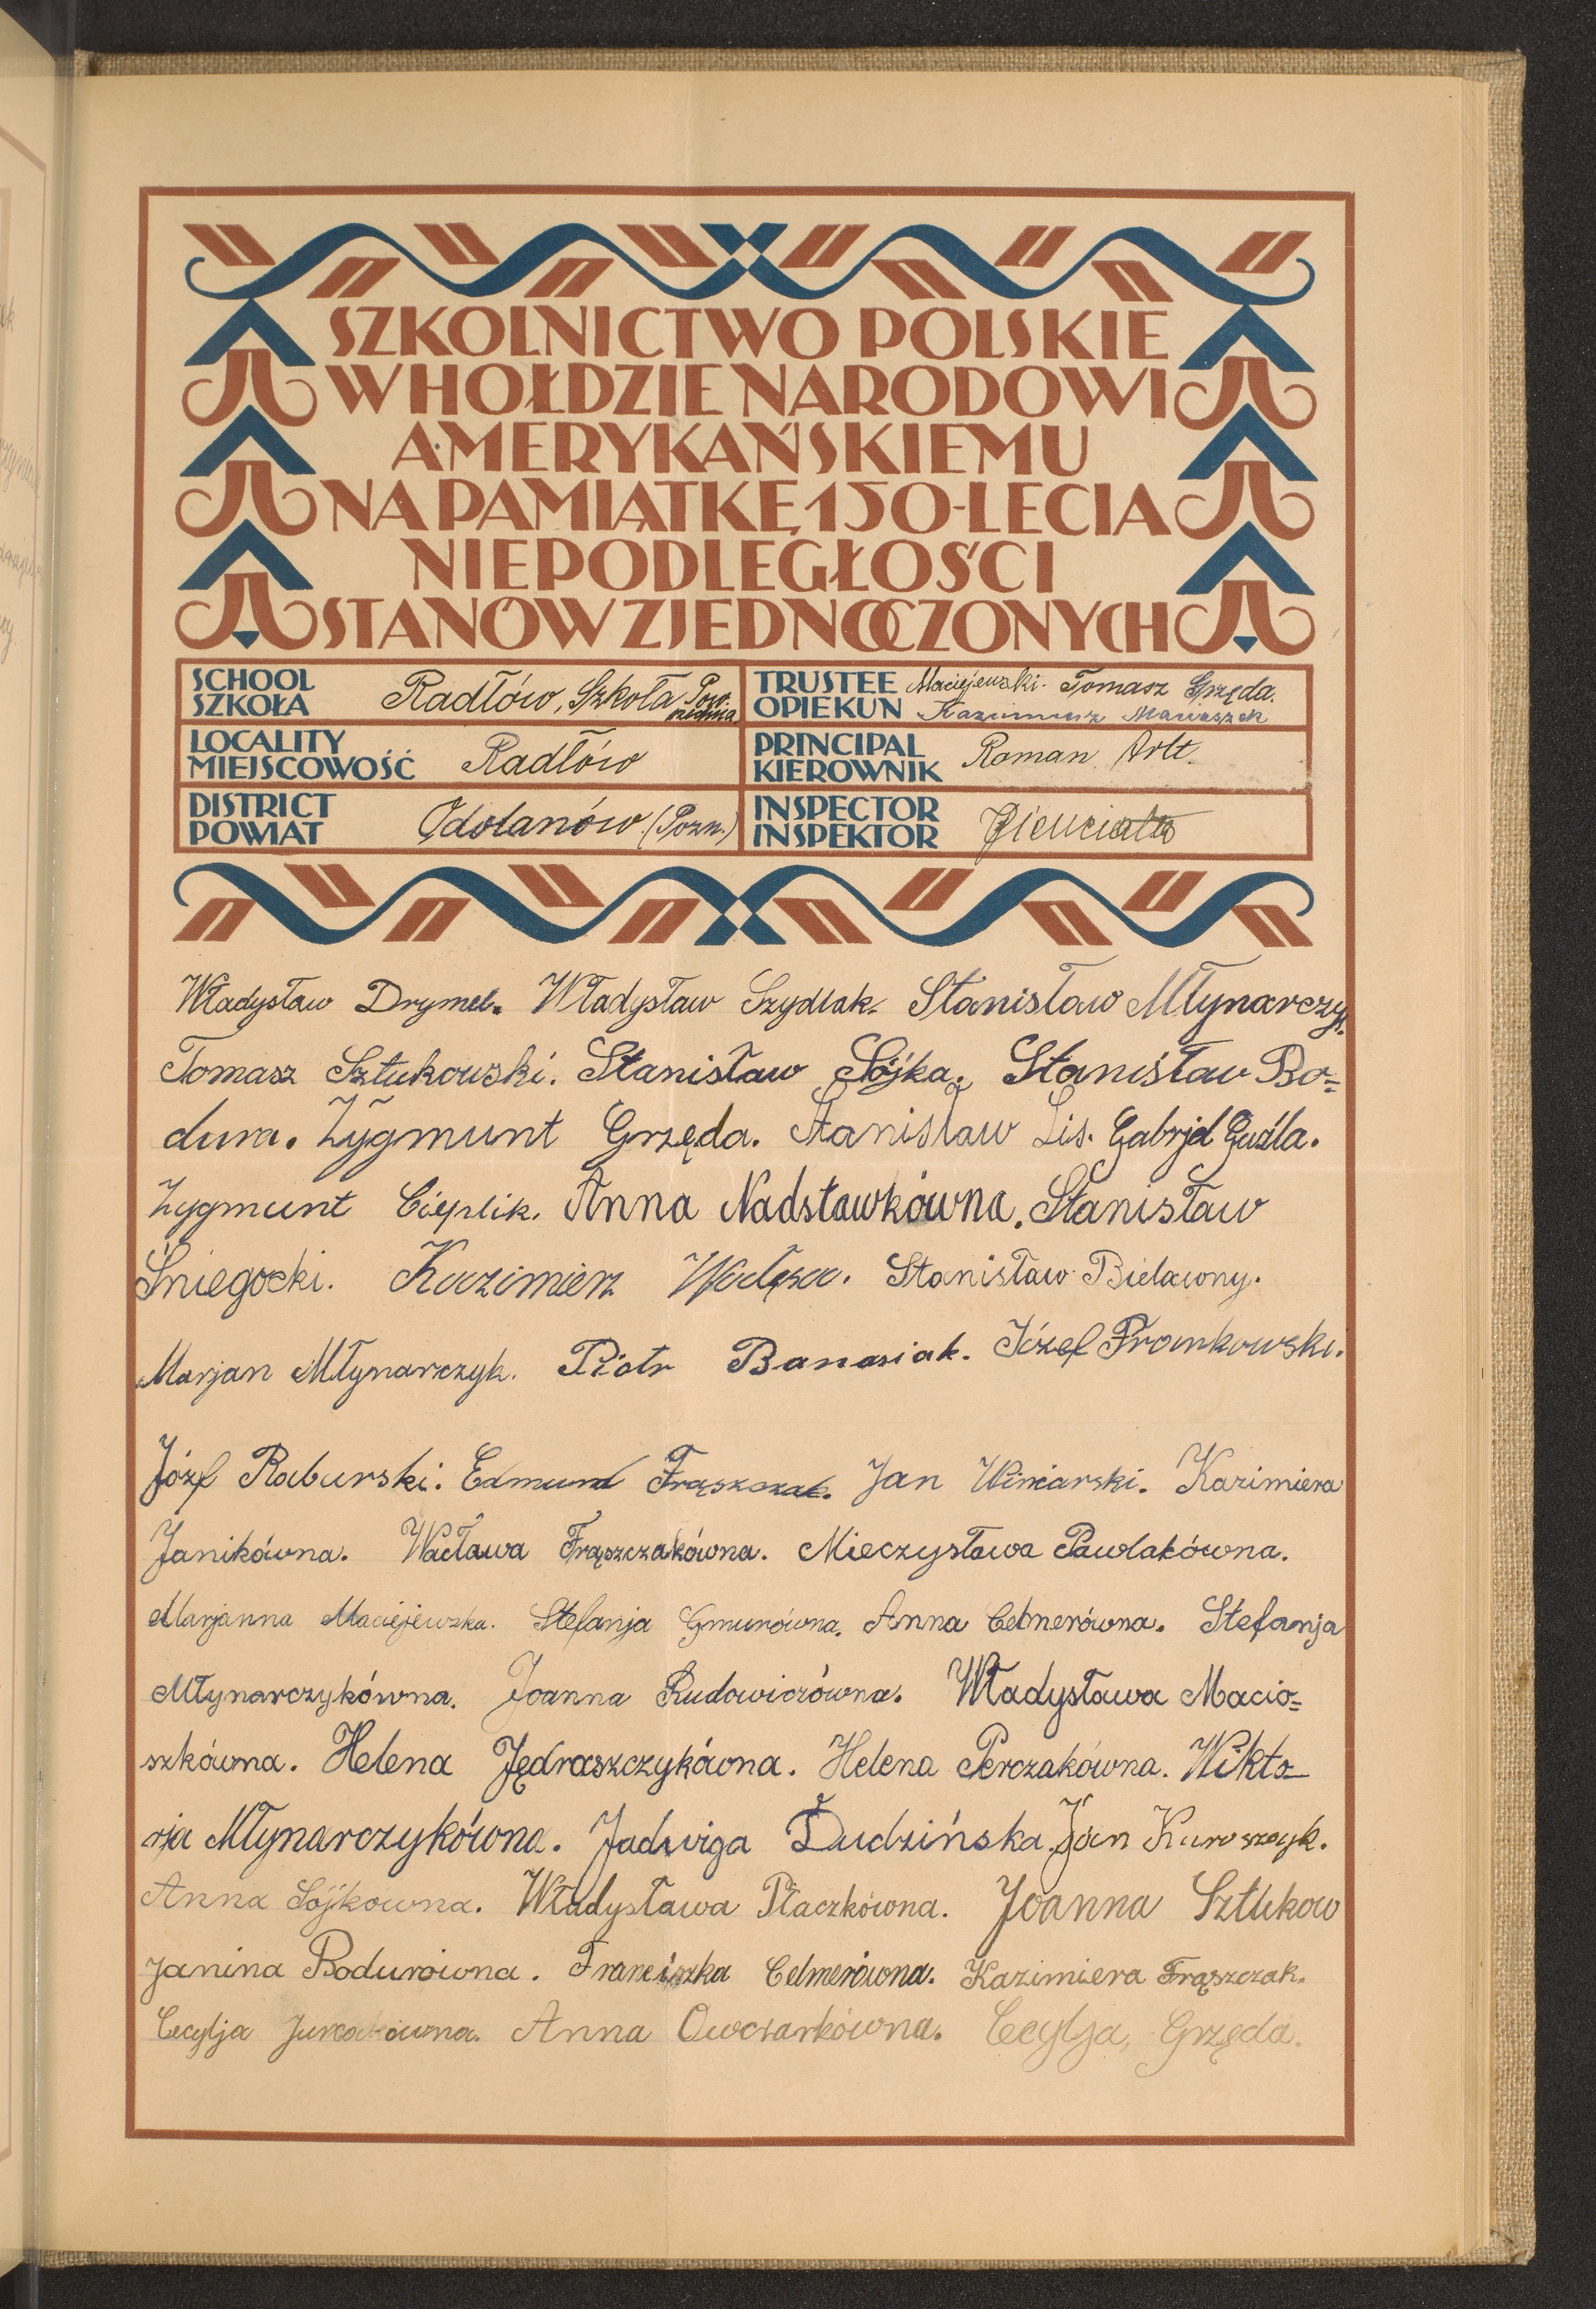 SZKOLNICTWO POLSKIE
W HOŁDZIE NARODOWI
AMERYKAŃSKIEMU
NA PAMIĄTKĘ 150-LECIA
NIEPODLEGŁOŚCI
STANÓW ZJEDNOCZONYCH
SCHOOL
SZKOŁA
Radłów, Szkoła Pow-
szechna
TRUSTEE
OPIEKUN
Maciejewski. Tomasz Grzęda.
Kazimierz Maciaszek
LOCALITY
MIEJSCOWOŚĆ
Radłów
PRINCIPAL
KIEROWNIK
Roman Arlt.
DISTRICT
POWIAT
Odolanów (Pozn.)
INSPECTOR
INSPEKTOR
Władysław Drymel. Władysław Szydlak. Stanisław Młynarczyk.
Tomasz Sztukowski. Stanisław Sójka. Stanisław Bo=
dura. Zygmunt Grzęda. Stanisław Lis. Gabrjel Guźla.
Zygmunt Cieplik. Anna Nadstawkówna. Stanisław
Śniegocki. Kazimierz Wałęsa. Stanisław Bielawny.
Marjan Młynarczyk. Piotr Banasiak. Józef Frankowski.
Józef Raburski. Edmund Frąszczak. Jan Winiarski. Kazimiera
Janikówna. Wacława Frąszczakówna. Mieczysława Pawlakówna.
Marjanna Maciejewska. Stefanja Gmurówna. Anna Celmerówna. Stefanja
Młynarczykówna. Joanna Rudowiczówna. Władysława Macio=
szkówna. Helena Jędraszczykówna. Helena Perczakówna. Wikto-
rja Młynarczykówna. Jadwiga Dudzińska. Jan Kuroszczyk.
Anna Sójkowna. Władysława Płaczkówna. Joanna Sztukow
Janina Bodurówna. Franciszka Celmerówna. Kazimiera Frąszczak.
Cecylja Anna Owczarkówna. Cecylja Grzęda.